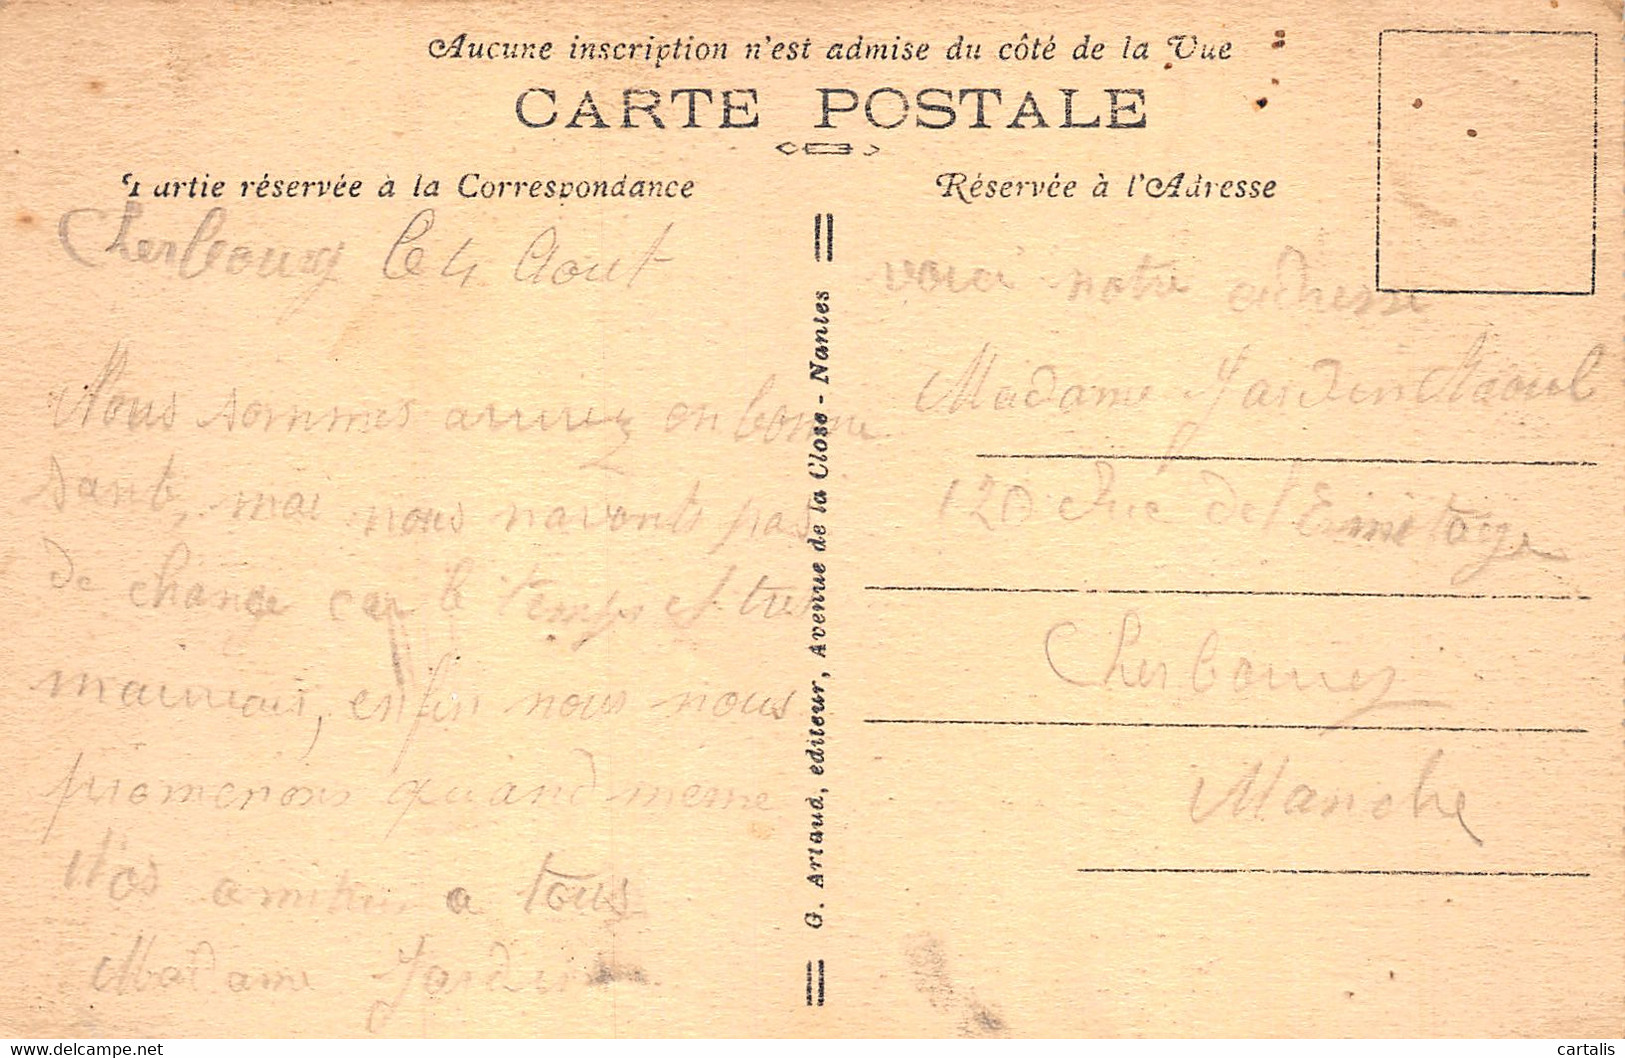 Aucune inscription n'est admise du côté de la Vue
CARTE POSTALE
Partie réservée à la Correspondance
Réservée à l'Adresse
Cherbourg le 4 Aout
Nous sommes arrivez en bonne
santé, mai nous navonts pas
de change car le temps et tres
mauvais, enfin nous nous
promenons quand meme
Nos amitiés a tous
Madame Jardin
G. Artaud, editeur, Avenue de la Close - Nantes
voici notre adresse
Madame Jardin Raoul
120 Rue de l'Ermitage
Cherbourg
Manche
cartalis